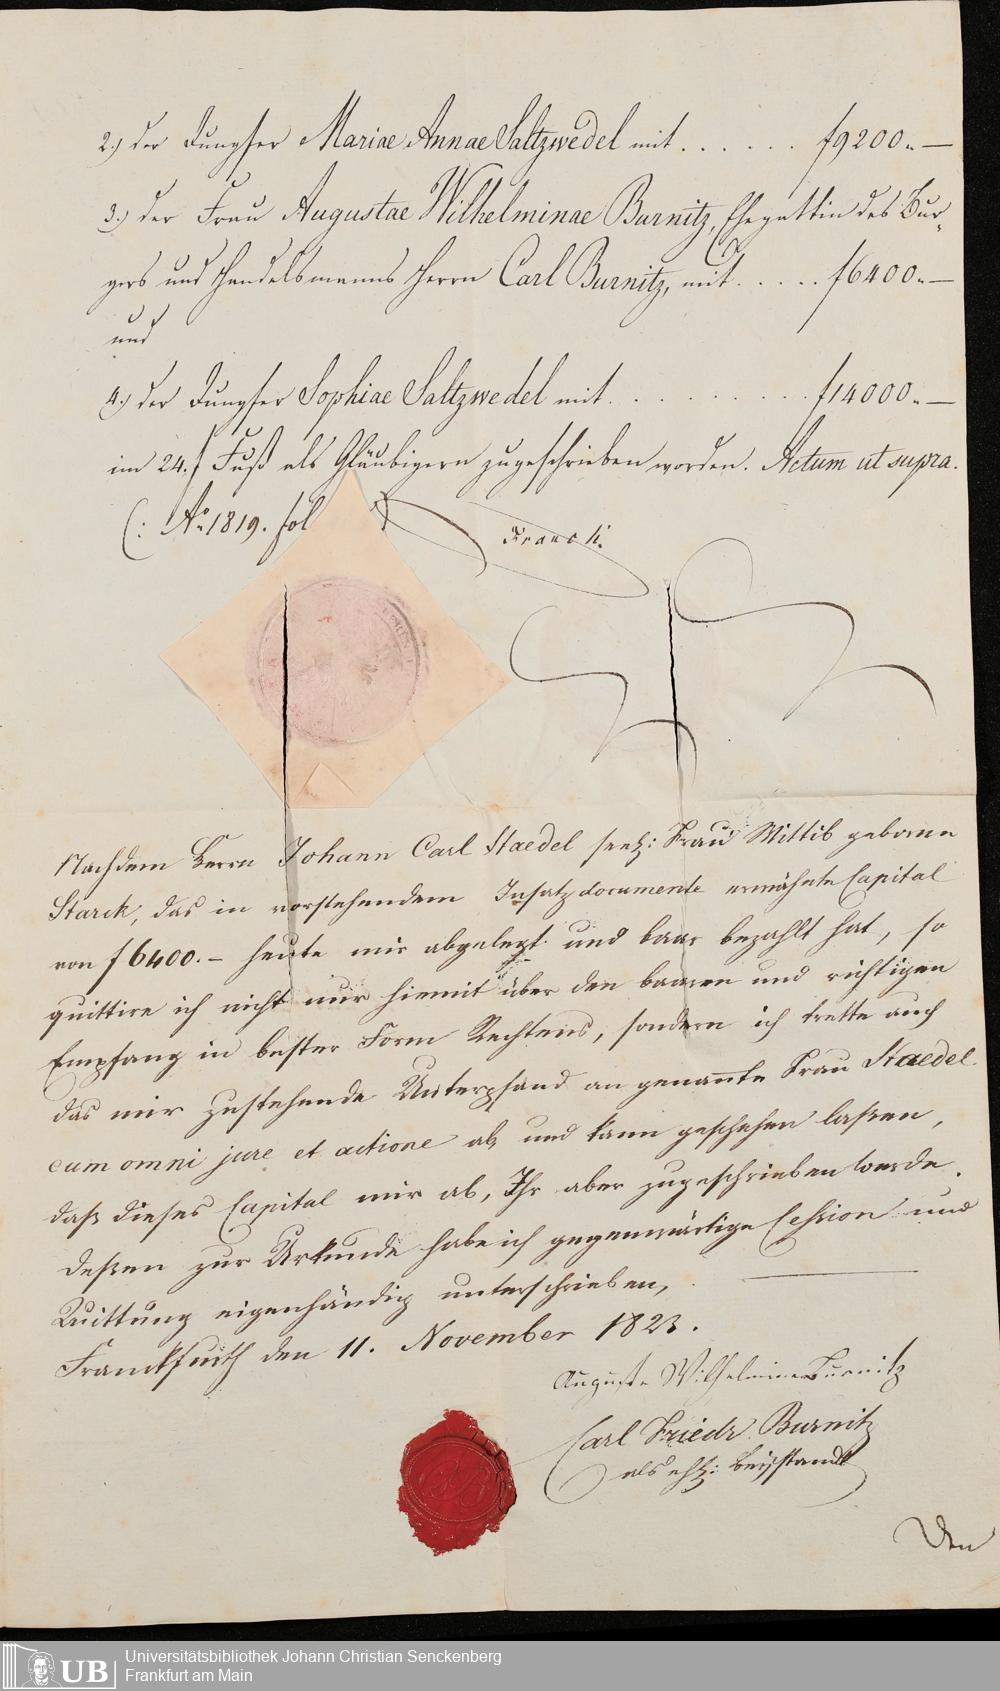 2.) der Jungfer Mariae Annae Saltzwedel mit . . . . . . f9200.. —
3.) der Frau Augustae Wilhelminae Burnitz, Ehegattin des Bur-
gers und Handelsmanns Herrn Carl Burnitz, mit . . . . . f6400.. —
und
4.) der Jungfer Sophiae Saltzwedel mit . . . . . . . . . f14000.. —
im 24. f Fuß als Gläubigern zugeschrieben worden. Actum ut supra.
(: Ao. 1819. fol
Nachdem Herrn Johann Carl Staedel seel: Frau Wittib geborne
Starck, das in vorstehendem Insatzdocumente ermähnte Capital
von f6400. — heute mir abgelegt und baar bezahlt hat, so
quittire ich nicht nur hiemit über den baaren und richtigen
Empfang in bester Form Rechtens, sondern ich trette auch
das mir zustehende Unterpfand an genannte Frau Staedel
cum omni jure et actione ab, und kann geschehen laßen,
daß dieses Capital mir ab, Ihr aber zugeschrieben werde.
Deßen zur Urkunde habe ich gegenwärtige Cession und
Quittung eigenhändig unterschrieben,
Franckfurth den 11. November 1823.
Auguste Wilhelmine Burnitz
Carl Friedr Burnitz
als ehl: Beystandt
Den
UB
Universitätsbibliothek Johann Christian Senckenberg
Frankfurt am Main